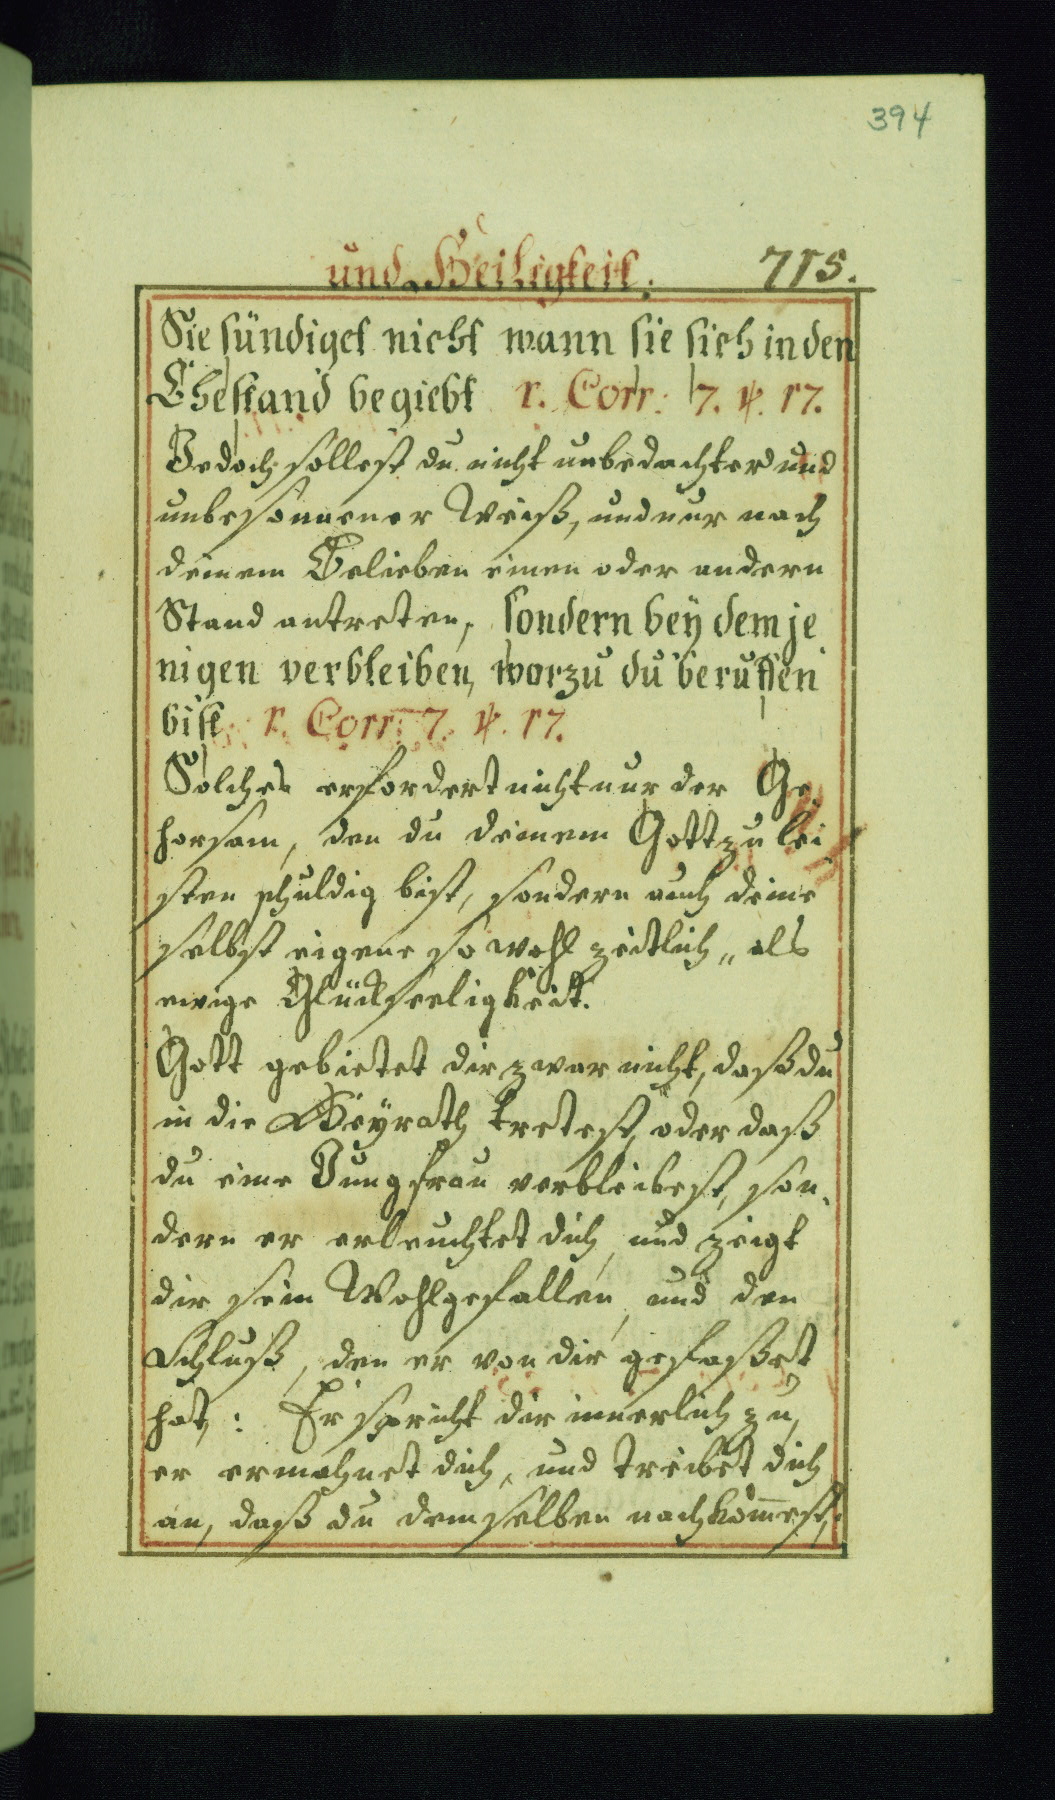 394
und Heiligkeit. 715.
Sie sündiget nicht wann sie sich in den
Ehestand begiebt 1. Corr: 7. ℣. 17.
Jedoch sollest du nicht unbedachter und
unbesonnener Weiß, und nur nach
deinem Belieben einen oder andern
Stand antreten, sondern bey dem je
nigen verbleiben, worzu du beruffen
bist. 1. Corr: 7. ℣. 17.
Solches erfordert nicht nur der Ge,
horsam, den du deinem Gott zu lei,
sten schuldig bist, sondern auch deine
selbst eigene so wohl zeitlich „ als
ewige Glückseeligkeit.
Gott gebietet dir zwar nicht, daß du
in die Heyrath tretest, oder daß
du eine Jungfrau verbleibest, son,
dern er erleuchtet dich, und zeigt
dir sein Wohlgefallen, und den
Schluß, den er von dir gefasset
hat: Er spricht dir innerlich zu,
er ermahnet dich, und treibet dich
an, daß du demselben nachkom̅est,